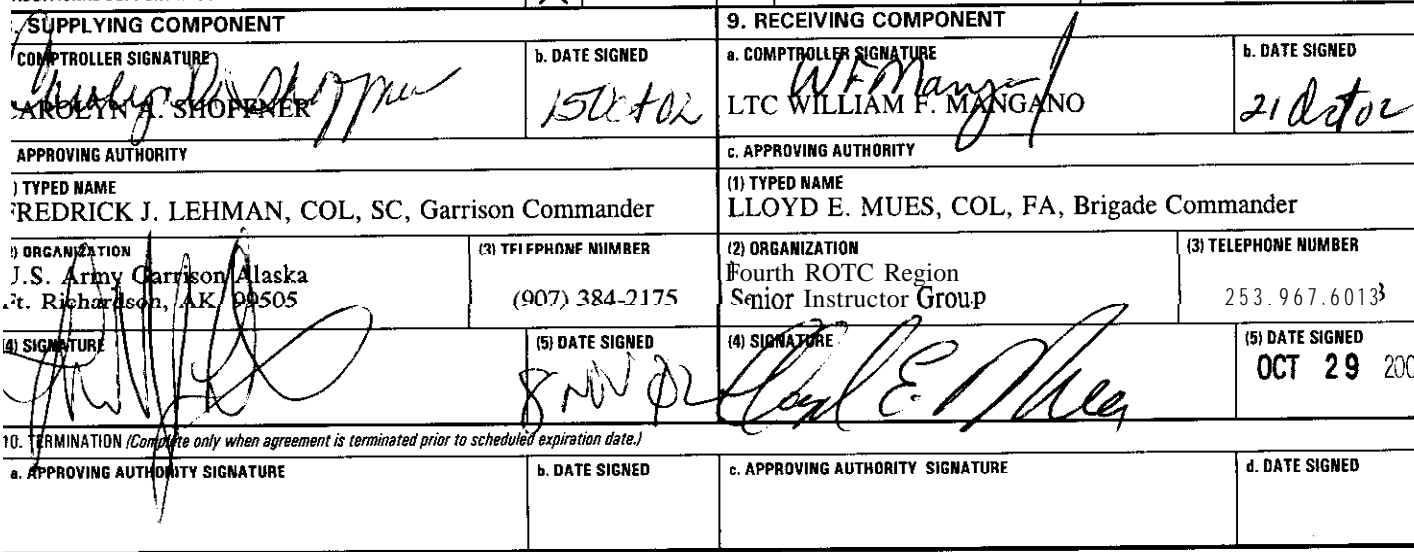 SUPPLYING COMPONENT
COMPTROLLER SIGNATURE
CAROLYN A. SHOFFNER
b. DATE SIGNED
15 Oct 02
APPROVING AUTHORITY
) TYPED NAME
FREDRICK J. LEHMAN, COL, SC, Garrison Commander
) ORGANIZATION
U.S. Army Garrison Alaska
Ft. Richardson, AK 99505
(3) TELEPHONE NUMBER
(907) 384-2175
(4) SIGNATURE
(5) DATE SIGNED
8 NOV 02
9. RECEIVING COMPONENT
a. COMPTROLLER SIGNATURE
LTC WILLIAM F. MANGANO
b. DATE SIGNED
21 Oct 02
c. APPROVING AUTHORITY
(1) TYPED NAME
LLOYD E. MUES, COL, FA, Brigade Commander
(2) ORGANIZATION
Fourth ROTC Region
Senior Instructor Group
(3) TELEPHONE NUMBER
253.967.6013
(4) SIGNATURE
Lloyd E. Mues
(5) DATE SIGNED
OCT 29 200
10. TERMINATION (Complete only when agreement is terminated prior to scheduled expiration date.)
a. APPROVING AUTHORITY SIGNATURE
b. DATE SIGNED
c. APPROVING AUTHORITY SIGNATURE
d. DATE SIGNED